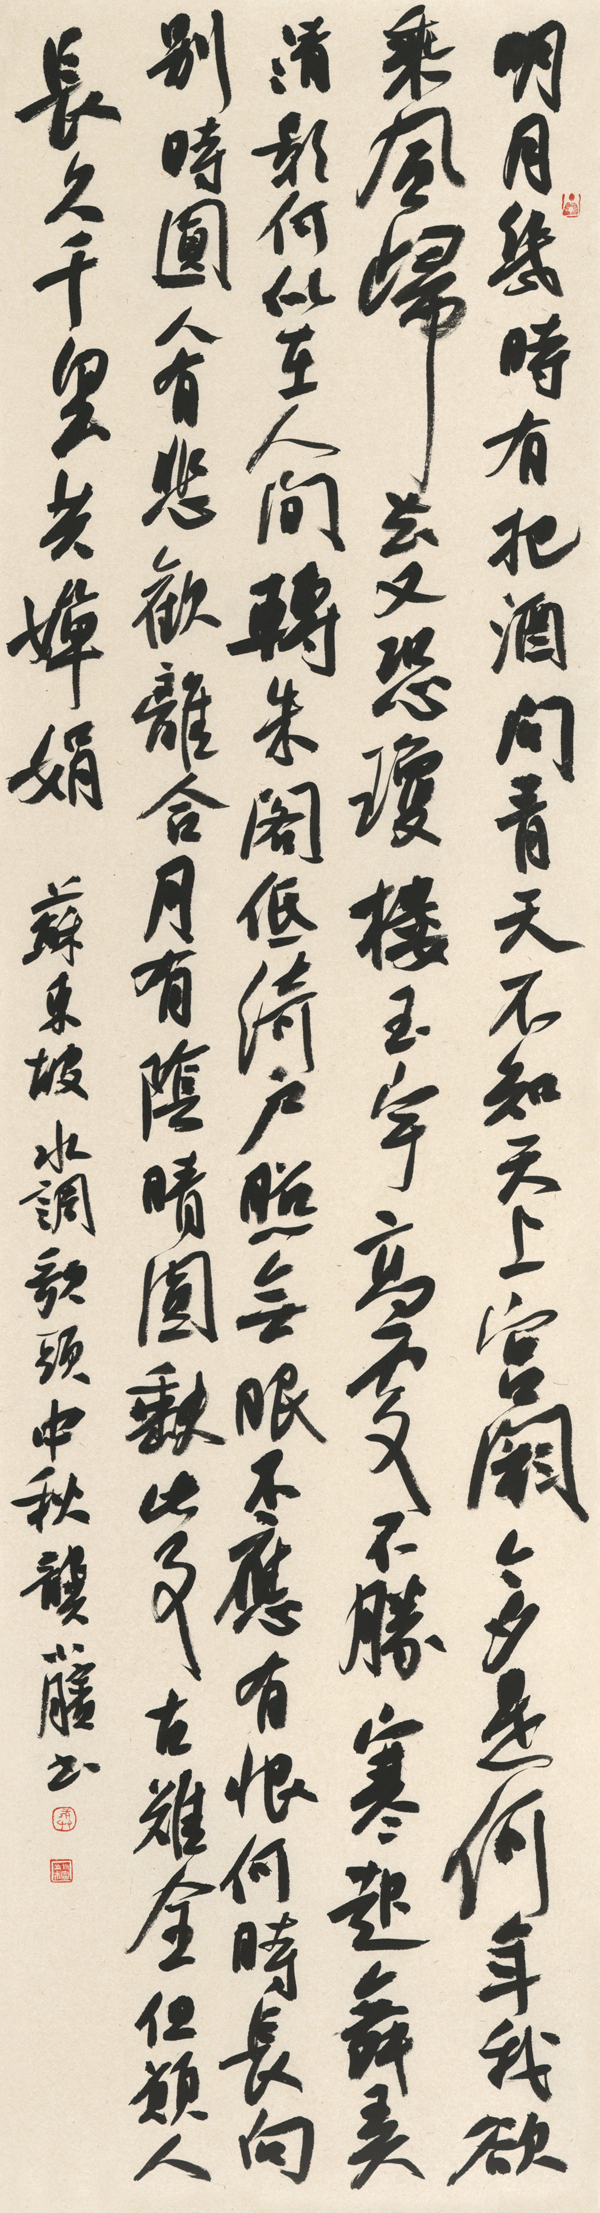 明月幾時有把酒問青天不知天上宮闕今夕是何年我欲
乘風歸去又恐瓊樓玉宇高處不勝寒起舞弄
清影何似在人間轉朱閣低綺戶照無眠不應有恨何時長向
別時圓人有悲歡離合月有陰晴圓缺此事古難全但願人
長久千里共嬋娟 蘇東坡水調歌頭中秋 龔小書